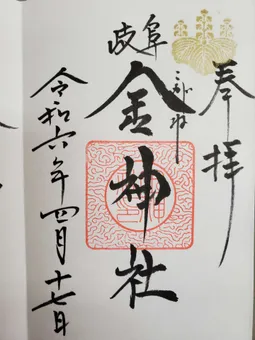 奉拝
岐阜
金神社
こがね
令和六年四月十七日